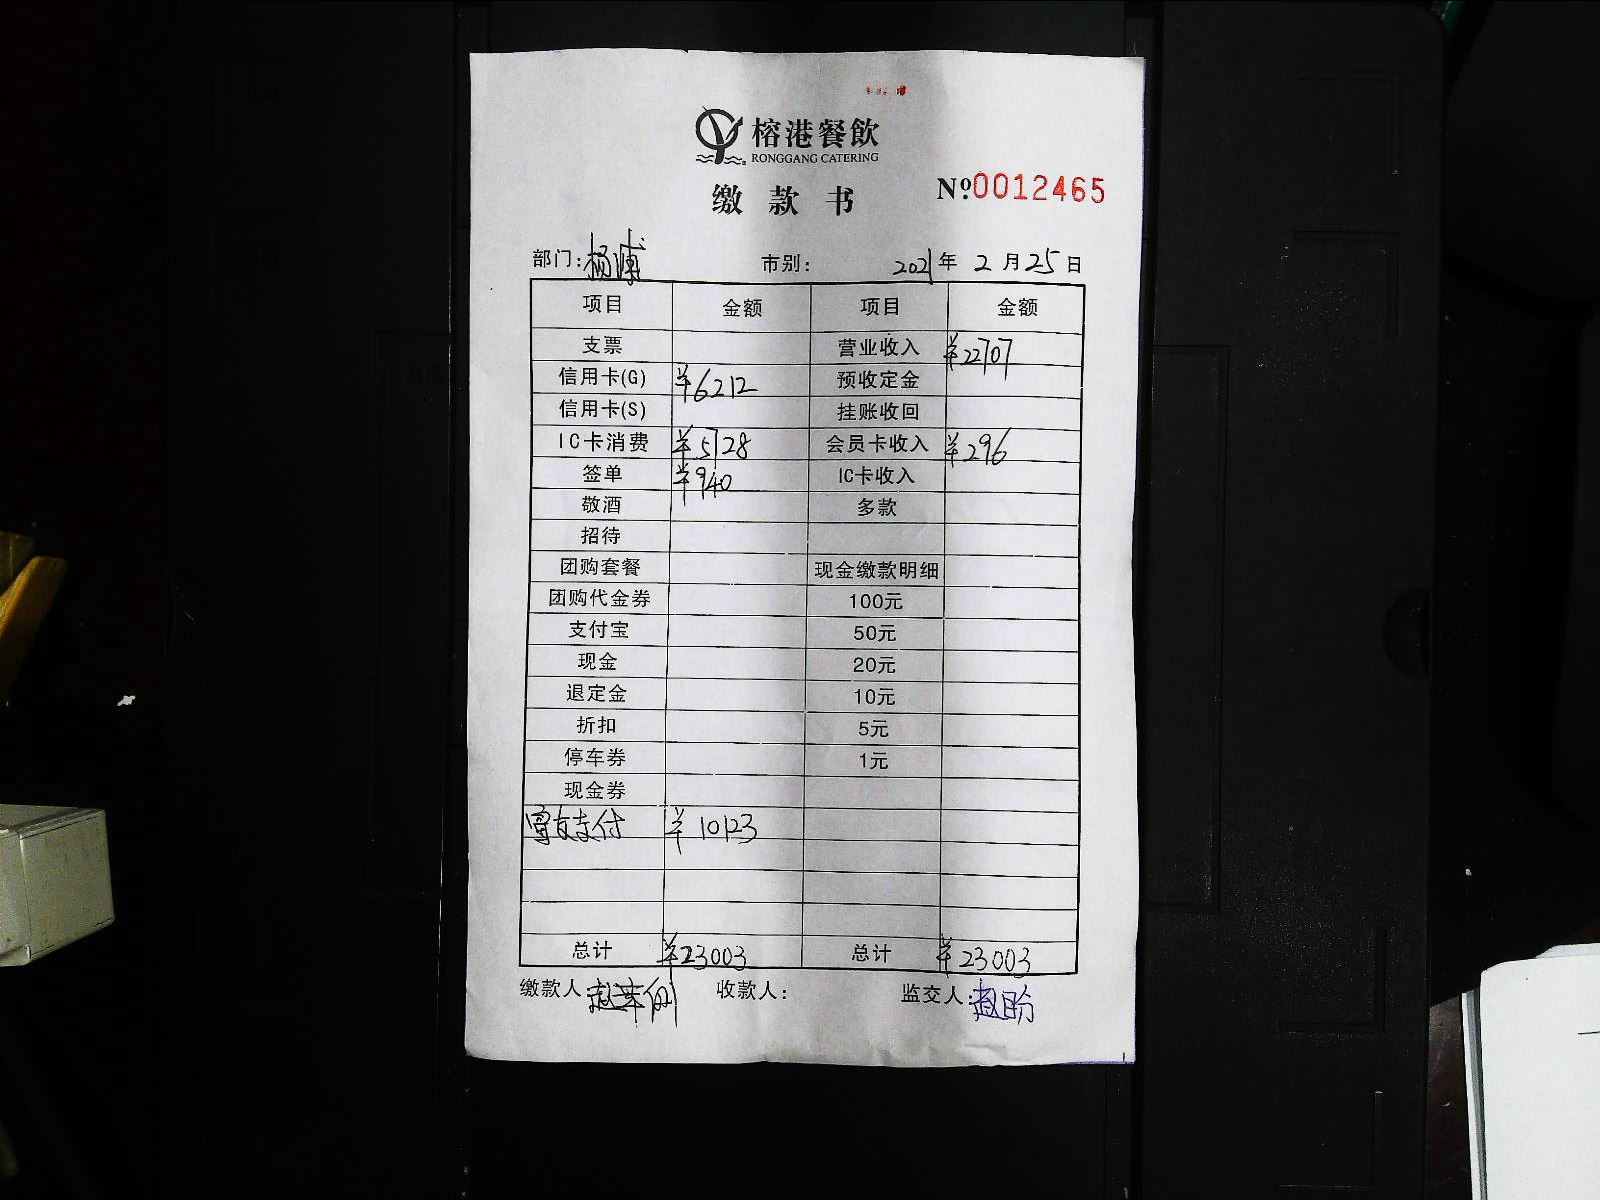 榕港餐飲
RONGGANG CATERING
缴款书 №0012465
部门:杨浦 市别: 2021年2月25日
项目 金额 项目 金额
支票 营业收入 ¥22707
信用卡(G) ¥6212 预收定金
信用卡(S) 挂账收回
IC卡消费 ¥5728 会员卡收入 ¥296
签单 ¥940 IC卡收入
敬酒 多款
招待
团购套餐 现金缴款明细
团购代金券 100元
支付宝 50元
现金 20元
退定金 10元
折扣 5元
停车券 1元
现金券
支付 ¥10123
总计 ¥23003 总计 ¥23003
缴款人: 收款人: 监交人: